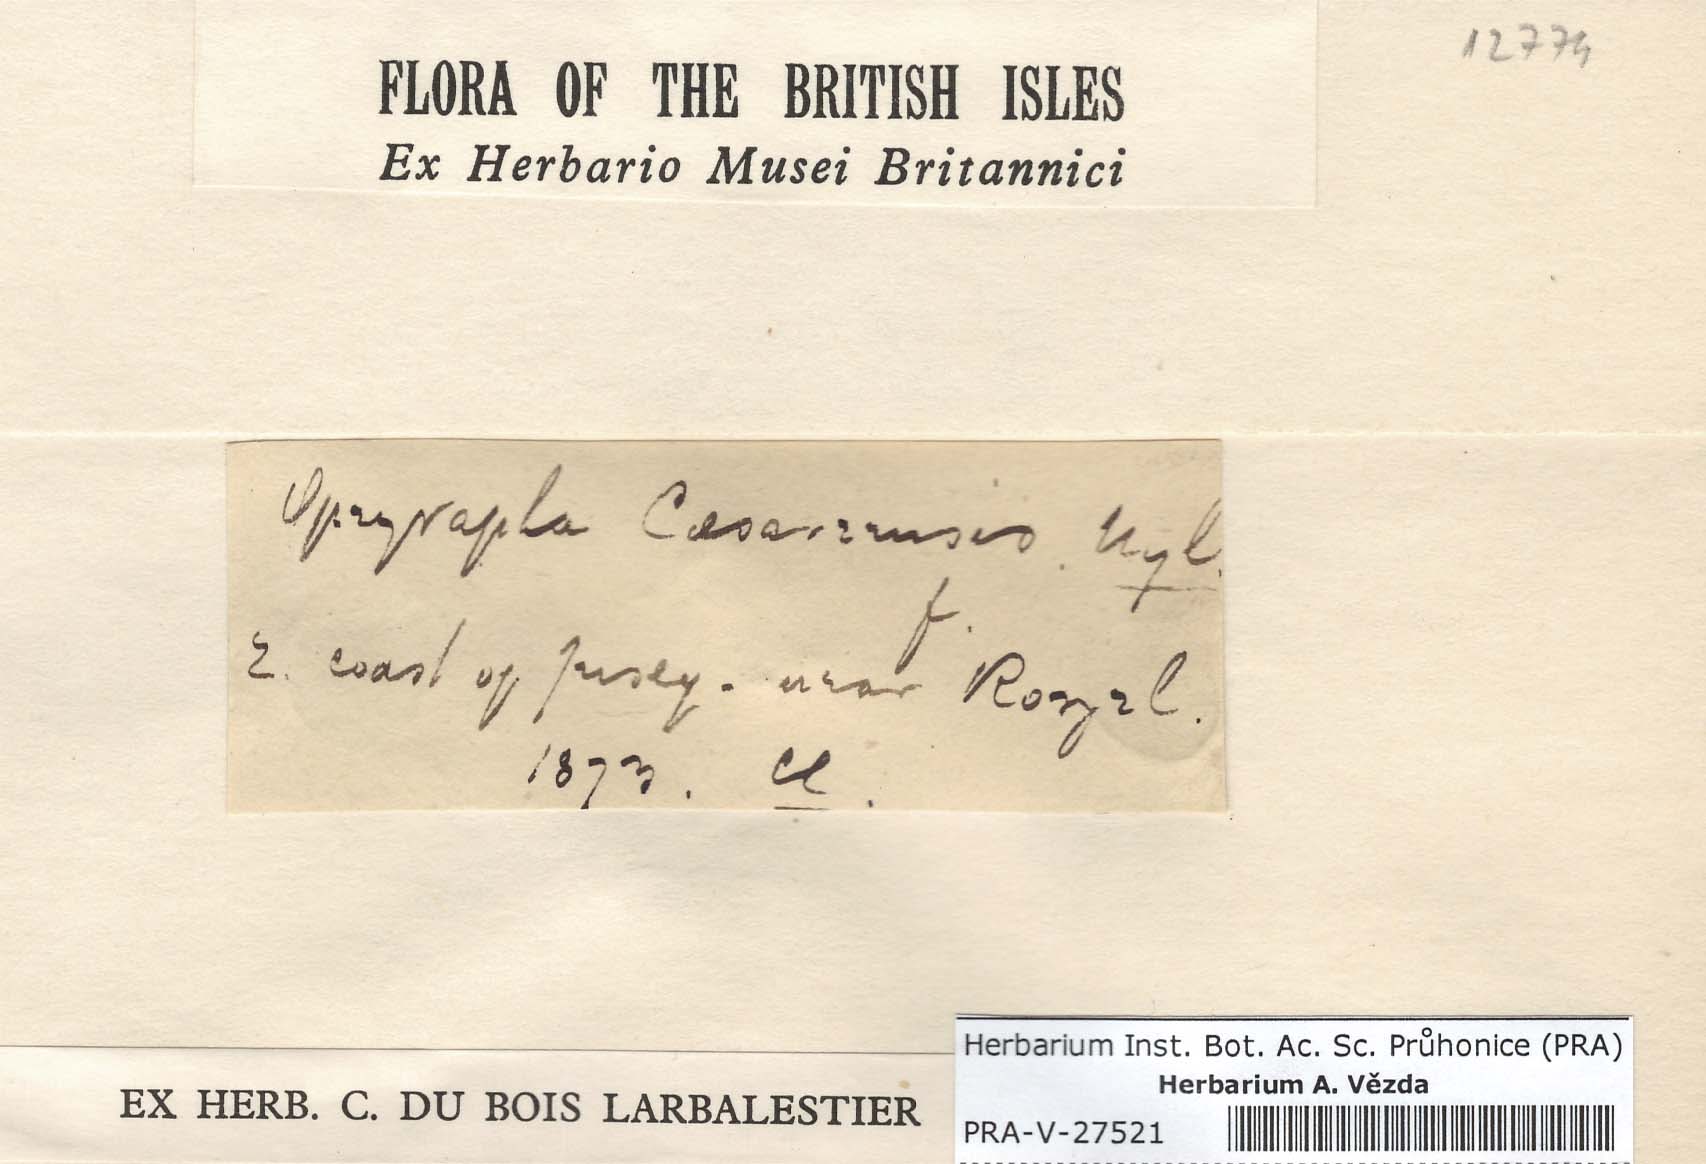 12774
FLORA OF THE BRITISH ISLES
Ex Herbario Musei Britannici
Opegrapha Caesareensis. Nyl.
f.
E. coast of Jersey. near Rozel.
1873. Cl.
EX HERB. C. DU BOIS LARBALESTIER
Herbarium Inst. Bot. Ac. Sc. Průhonice (PRA)
Herbarium A. Vězda
PRA-V-27521